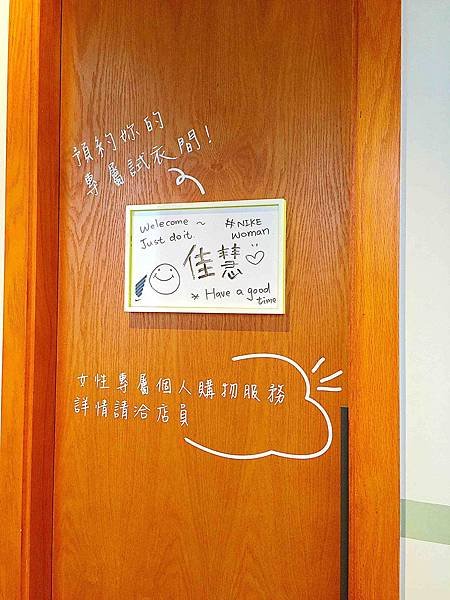 預約妳的
專屬試衣間!
Welecome ~
Just do it
#NIKE
Woman
佳慧
* Have a good
time
女性專屬個人購物服務
詳情請洽店員